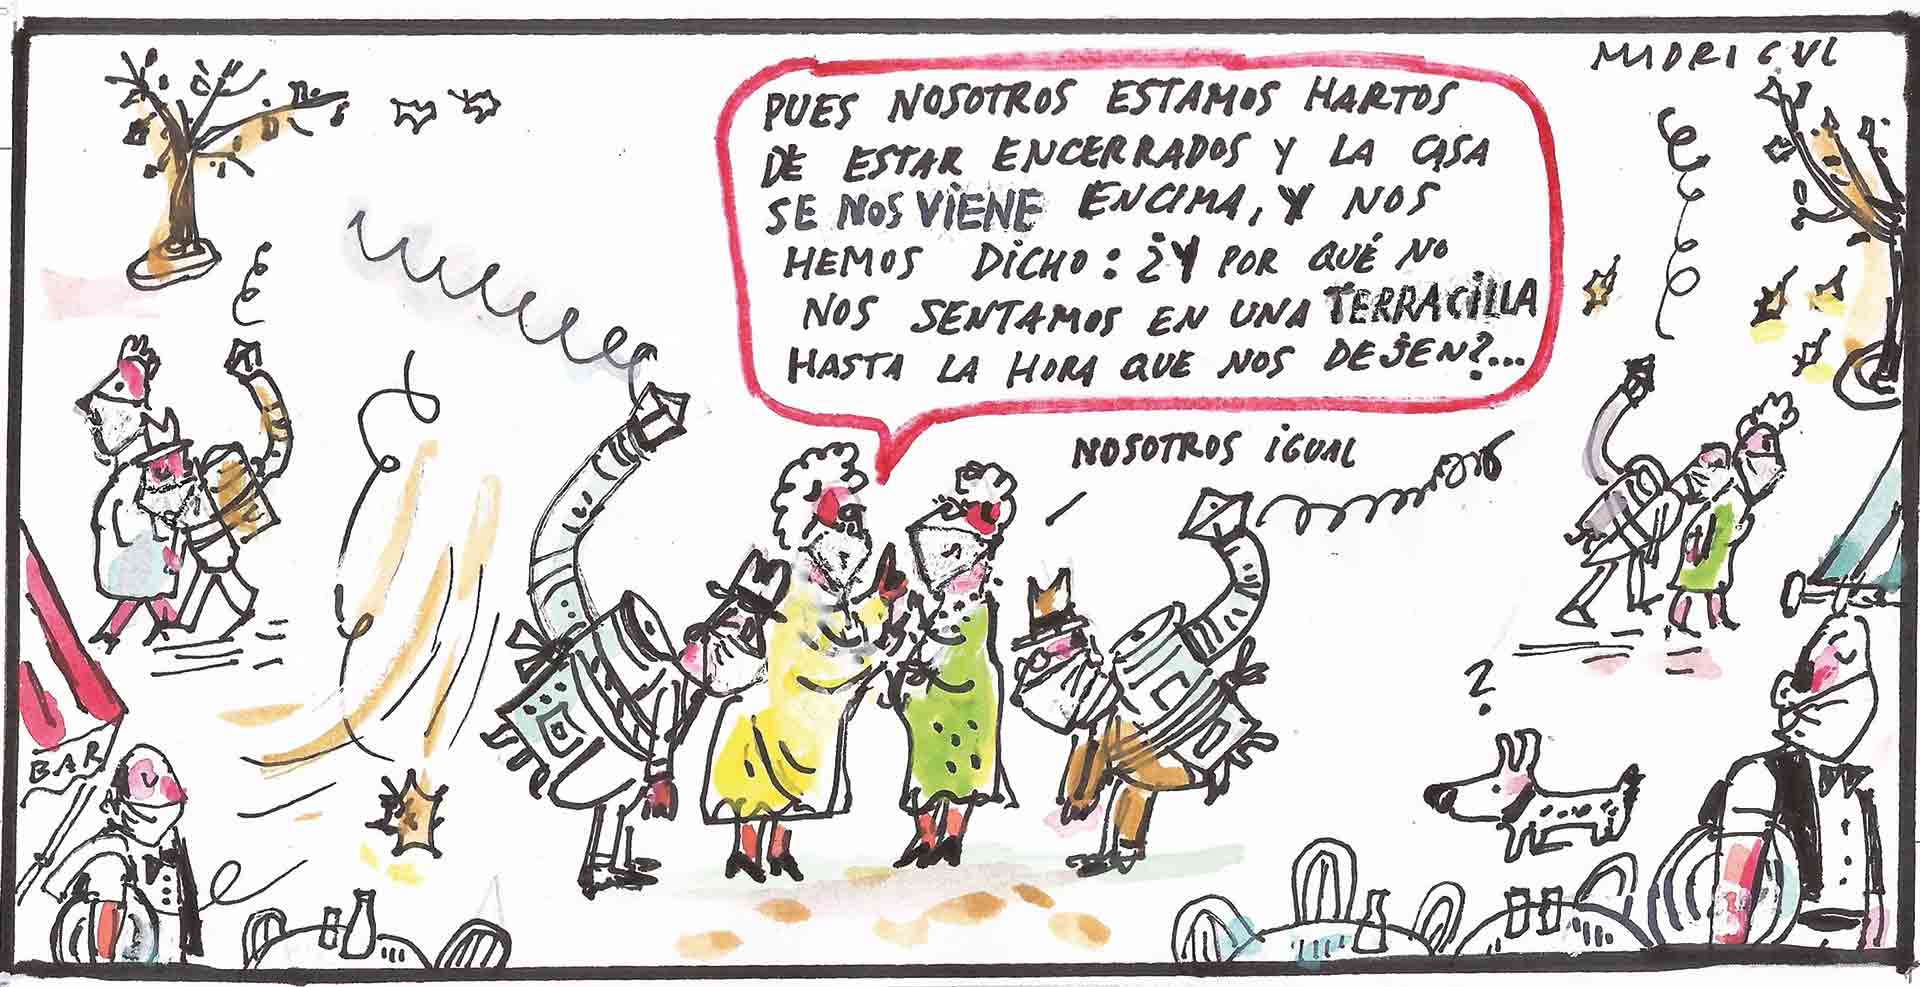 MADRIGAL
PUES NOSOTROS ESTAMOS HARTOS
DE ESTAR ENCERRADOS Y LA CASA
SE NOS VIENE ENCIMA, Y NOS
HEMOS DICHO: ¿Y POR QUÉ NO
NOS SENTAMOS EN UNA TERRACILLA
HASTA LA HORA QUE NOS DEJEN?...
NOSOTROS IGUAL
?
BAR